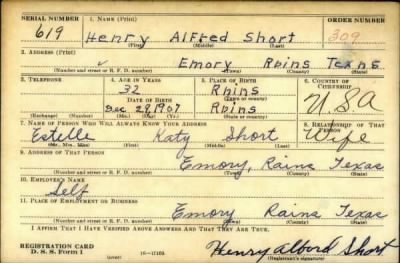 SERIAL NUMBER 1. NAME (Print) ORDER NUMBER
619 Henry Alfred Short 309
(First) (Middle) (Last)
2. ADDRESS (Print)
Emory Rains Texas
(Number and street or R. F. D. number) (Town) (County) (State)
3. TELEPHONE 4. AGE IN YEARS 5. PLACE OF BIRTH 6. COUNTRY OF CITIZENSHIP
32 Rains
DATE OF BIRTH (Town or county)
Dec 28 1907 Rains USA
(Exchange) (Number) (Mo.) (Day) (Yr.) (State or country)
7. NAME OF PERSON WHO WILL ALWAYS KNOW YOUR ADDRESS 8. RELATIONSHIP OF THAT PERSON
Estelle Katy Short Wife
(Mr., Mrs., Miss) (First) (Middle) (Last)
9. ADDRESS OF THAT PERSON
Emory, Rains, Texas
(Number and street or R. F. D. number) (Town) (County) (State)
10. EMPLOYER'S NAME
Self
11. PLACE OF EMPLOYMENT OR BUSINESS
Emory Rains Texas
(Number and street or R. F. D. number) (Town) (County) (State)
I AFFIRM THAT I HAVE VERIFIED ABOVE ANSWERS AND THAT THEY ARE TRUE.
REGISTRATION CARD
D. S. S. Form 1 (over) Henry Short
(Registrant's signature)